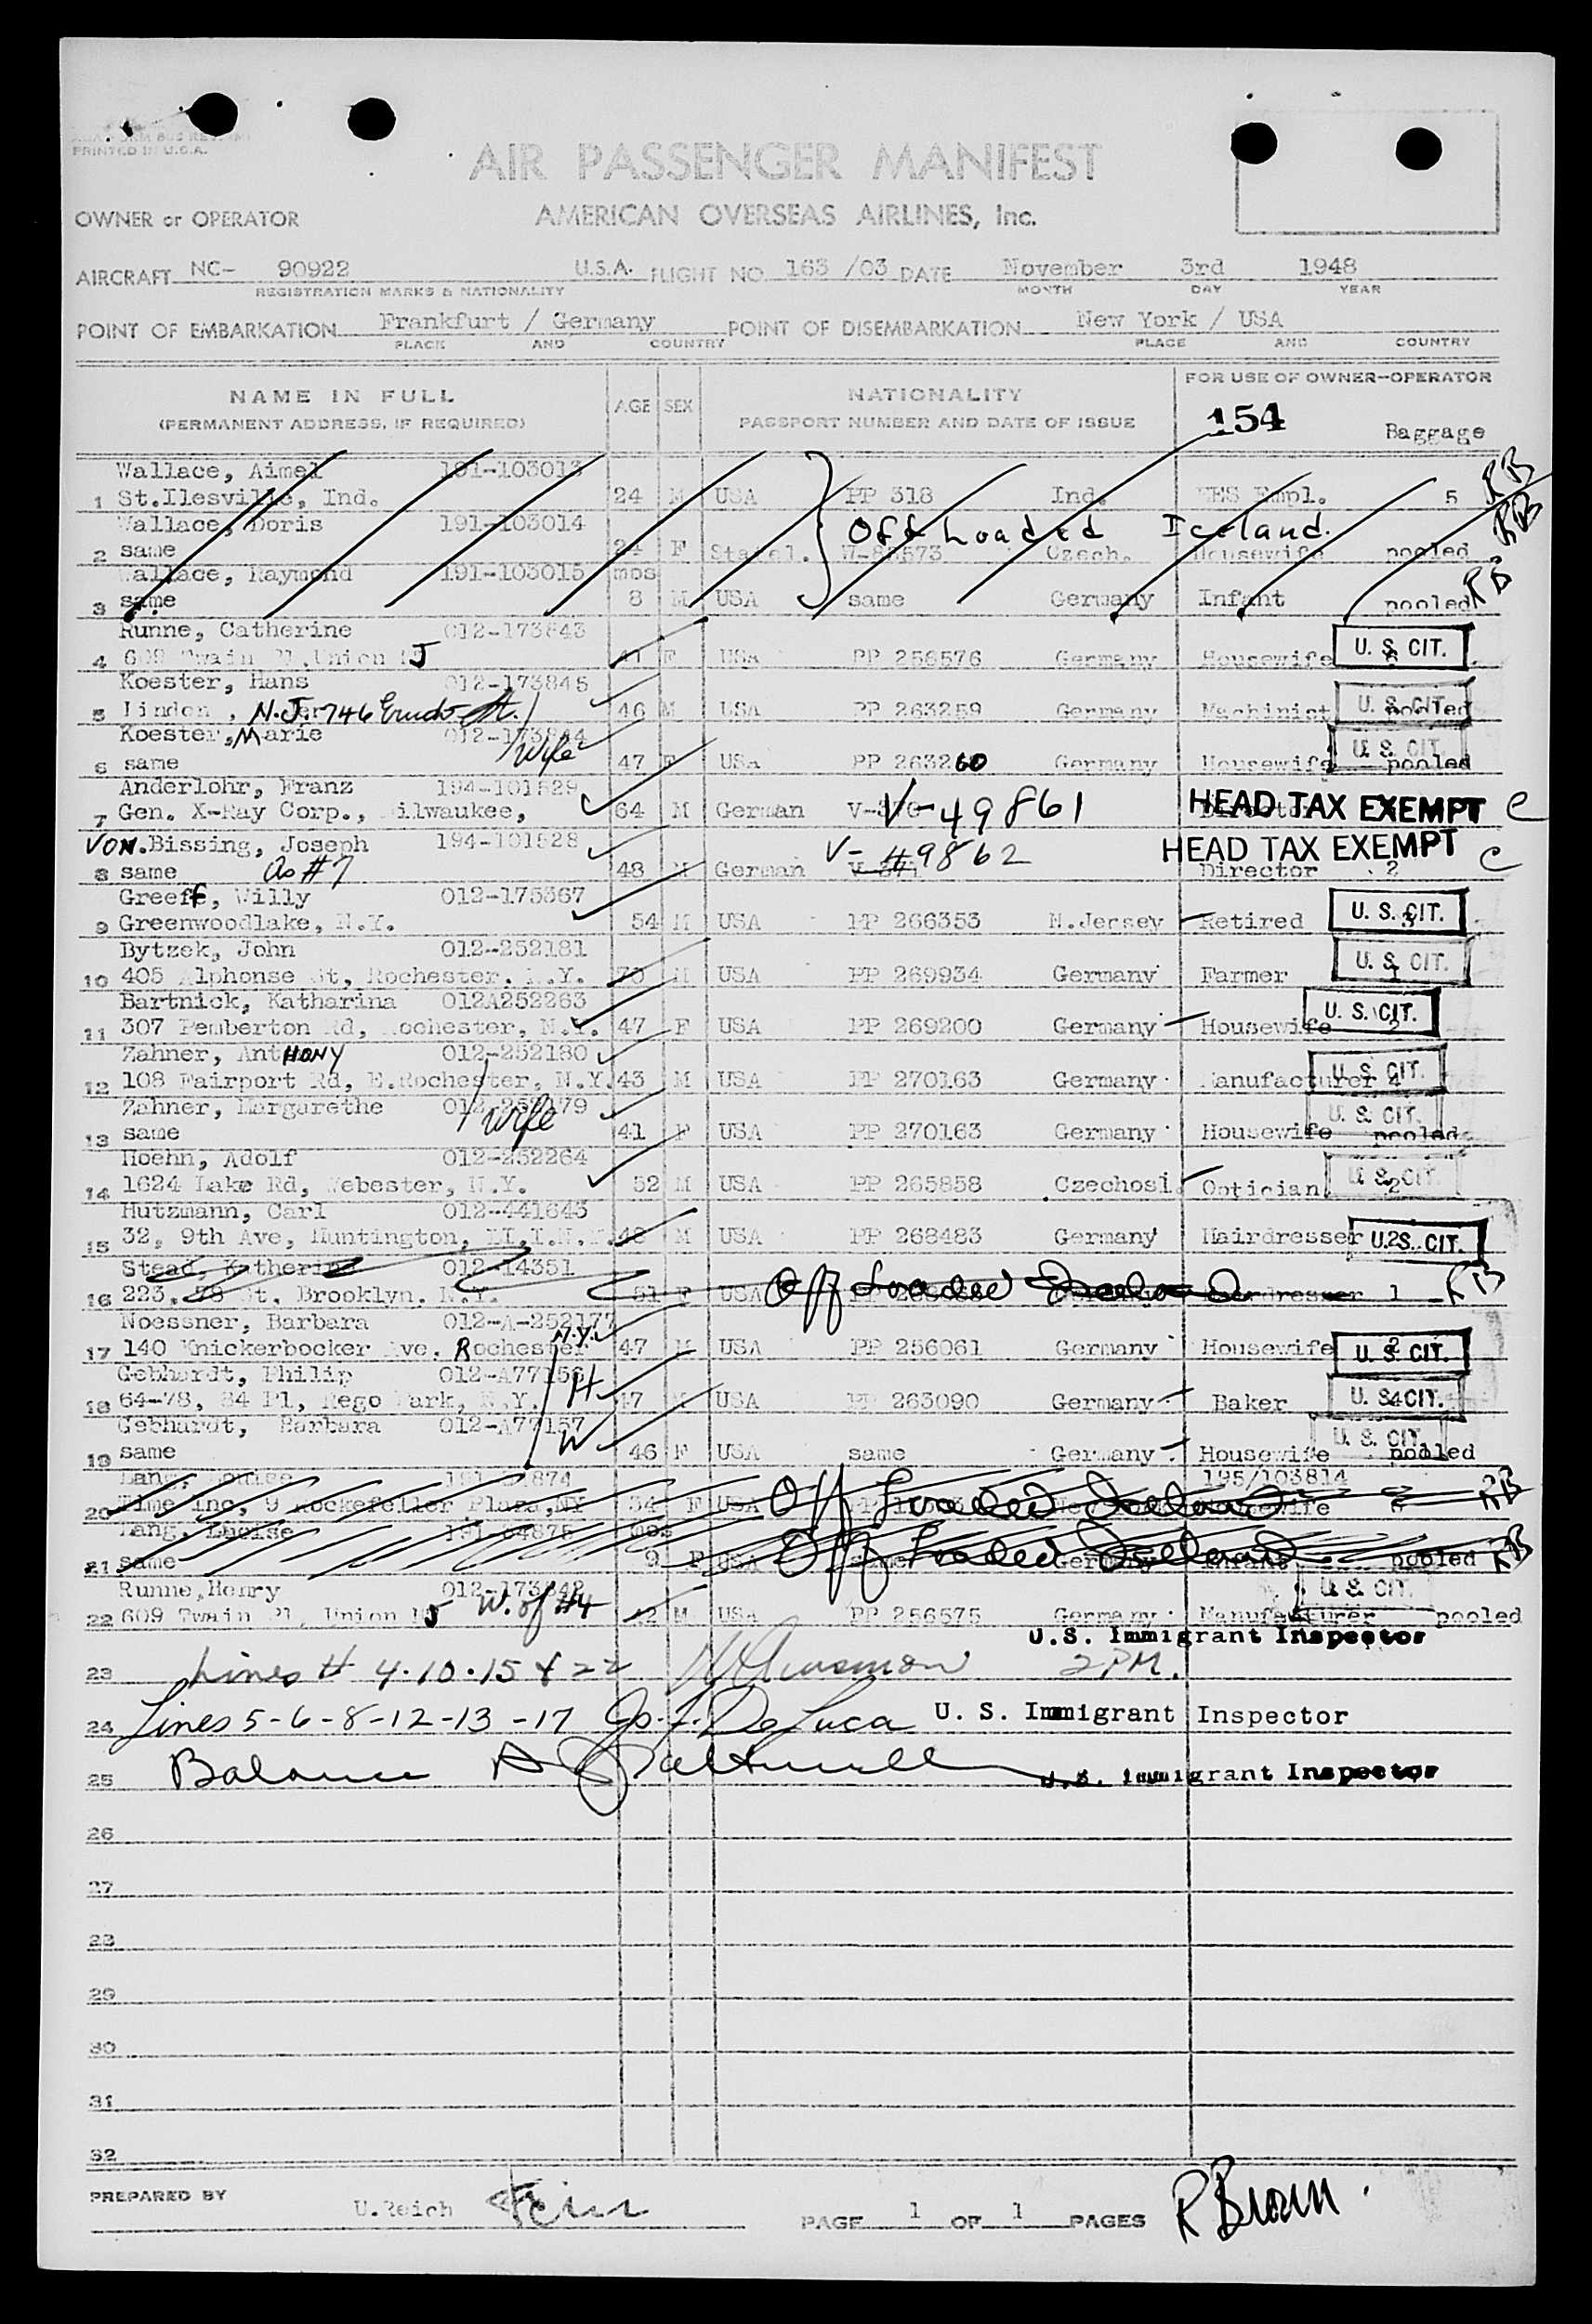 PRINTED IN U.S.A.
AIR PASSENGER MANIFEST
OWNER or OPERATOR AMERICAN OVERSEAS AIRLINES, Inc.
AIRCRAFT NC- 90922 U.S.A. FLIGHT NO. 163 /03 DATE November 3rd 1948
REGISTRATION MARKS & NATIONALITY MONTH DAY YEAR
POINT OF EMBARKATION Frankfurt / Germany POINT OF DISEMBARKATION New York / USA
PLACE AND COUNTRY PLACE AND COUNTRY
NAME IN FULL AGE SEX NATIONALITY FOR USE OF OWNER-OPERATOR
(PERMANENT ADDRESS, IF REQUIRED) PASSPORT NUMBER AND DATE OF ISSUE 154 Baggage
Wallace, Aimel 191-103013
1 St.Ilesville, Ind. 24 M USA PP 318 Ind. Empl. 5 RB
Wallace, Doris 191-103014 Off Loaded Iceland. RB
2 same 24 F Statel. Czech. Housewife pooled
Wallace, Raymond 191-103015 mos
3 same 8 M USA same Germany Infant pooled RB
Runne, Catherine 012-173843
4 609 Twain Pl, Union NJ 41 F USA PP 256576 Germany Housewife U. S. CIT.
Koester, Hans 012-173845
5 Linden, N.J. 746 St. 46 M USA PP 263259 Germany Machinist U. S. CIT. pooled
Koester, Marie 012-173844 Wife
6 same 47 F USA PP 263260 Germany Housewife U. S. CIT. pooled
Anderlohr, Franz 194-101529
7 Gen. X-Ray Corp., Milwaukee, 64 M German V-49861 Director HEAD TAX EXEMPT C
von. Bissing, Joseph 194-101528 V-49862 HEAD TAX EXEMPT C
8 same As #7 48 M German Director 2
Greeff, Willy 012-175367
9 Greenwoodlake, N.Y. 54 M USA PP 266353 N.Jersey Retired U. S. CIT.
Bytzek, John 012-252181
10 405 Alphonse St, Rochester, N.Y. 70 M USA PP 269934 Germany Farmer 1 U. S. CIT.
Bartnick, Katharina 012A252263
11 307 Pemberton Rd, Rochester, N.Y. 47 F USA PP 269200 Germany Housewife 2 U. S. CIT.
Zahner, Anthony 012-252180
12 108 Fairport Rd, E.Rochester, N.Y. 43 M USA PP 270163 Germany Manufacturer 4 U. S. CIT.
Zahner, Margarethe 012-252179 Wife
13 same 41 F USA PP 270163 Germany Housewife U. S. CIT. pooled
Hoehn, Adolf 012-252264
14 1624 Lake Rd, Webester, N.Y. 52 M USA PP 265858 Czechosl. Optician 2 U. S. CIT.
Hutzmann, Carl 012-441643
15 32, 9th Ave, Huntington, LI,I.N.Y. 48 M USA PP 268483 Germany Hairdresser 2 U. S. CIT.
Stead, Katherine 012-14351
16 223, 78 St, Brooklyn. N.Y. 51 F USA Off Loaded Iceland Hairdresser 1 RB
Noessner, Barbara 012-A-252177 N.Y.
17 140 Knickerbocker Ave. Rochester 47 M USA PP 256061 Germany Housewife 2 U. S. CIT.
Gebhardt, Philip 012-A77156 H
18 64-78, 84 Pl, Rego Park, N.Y. 47 M USA PP 263090 Germany Baker 4 U. S. CIT.
Gebhardt, Barbara 012-A77157 W
19 same 46 F USA same Germany Housewife U. S. CIT. pooled
Lang, Louise 195/103814
20 Time inc, 9 Rockefeller Plaza,NY 34 F USA Off Loaded Iceland Housewife RB
Lang, Louise 191-64875 mos
21 same 9 F USA Off Loaded Iceland same Germany Infant pooled RB
Runne, Henry 012-173842
22 609 Twain Pl, Union NJ W. of #4 42 M USA PP 256575 Germany Manufacturer U. S. CIT. pooled
U.S. Immigrant Inspector
23 Lines # 4-10-15 & 22 2 PM.
24 Lines 5-6-8-12-13-17 Jo. F. DeLuca U. S. Immigrant Inspector
25 Balance U.S. Immigrant Inspector
26
27
28
29
30
31
32
PREPARED BY U.Reich PAGE 1 OF 1 PAGES R Brown.